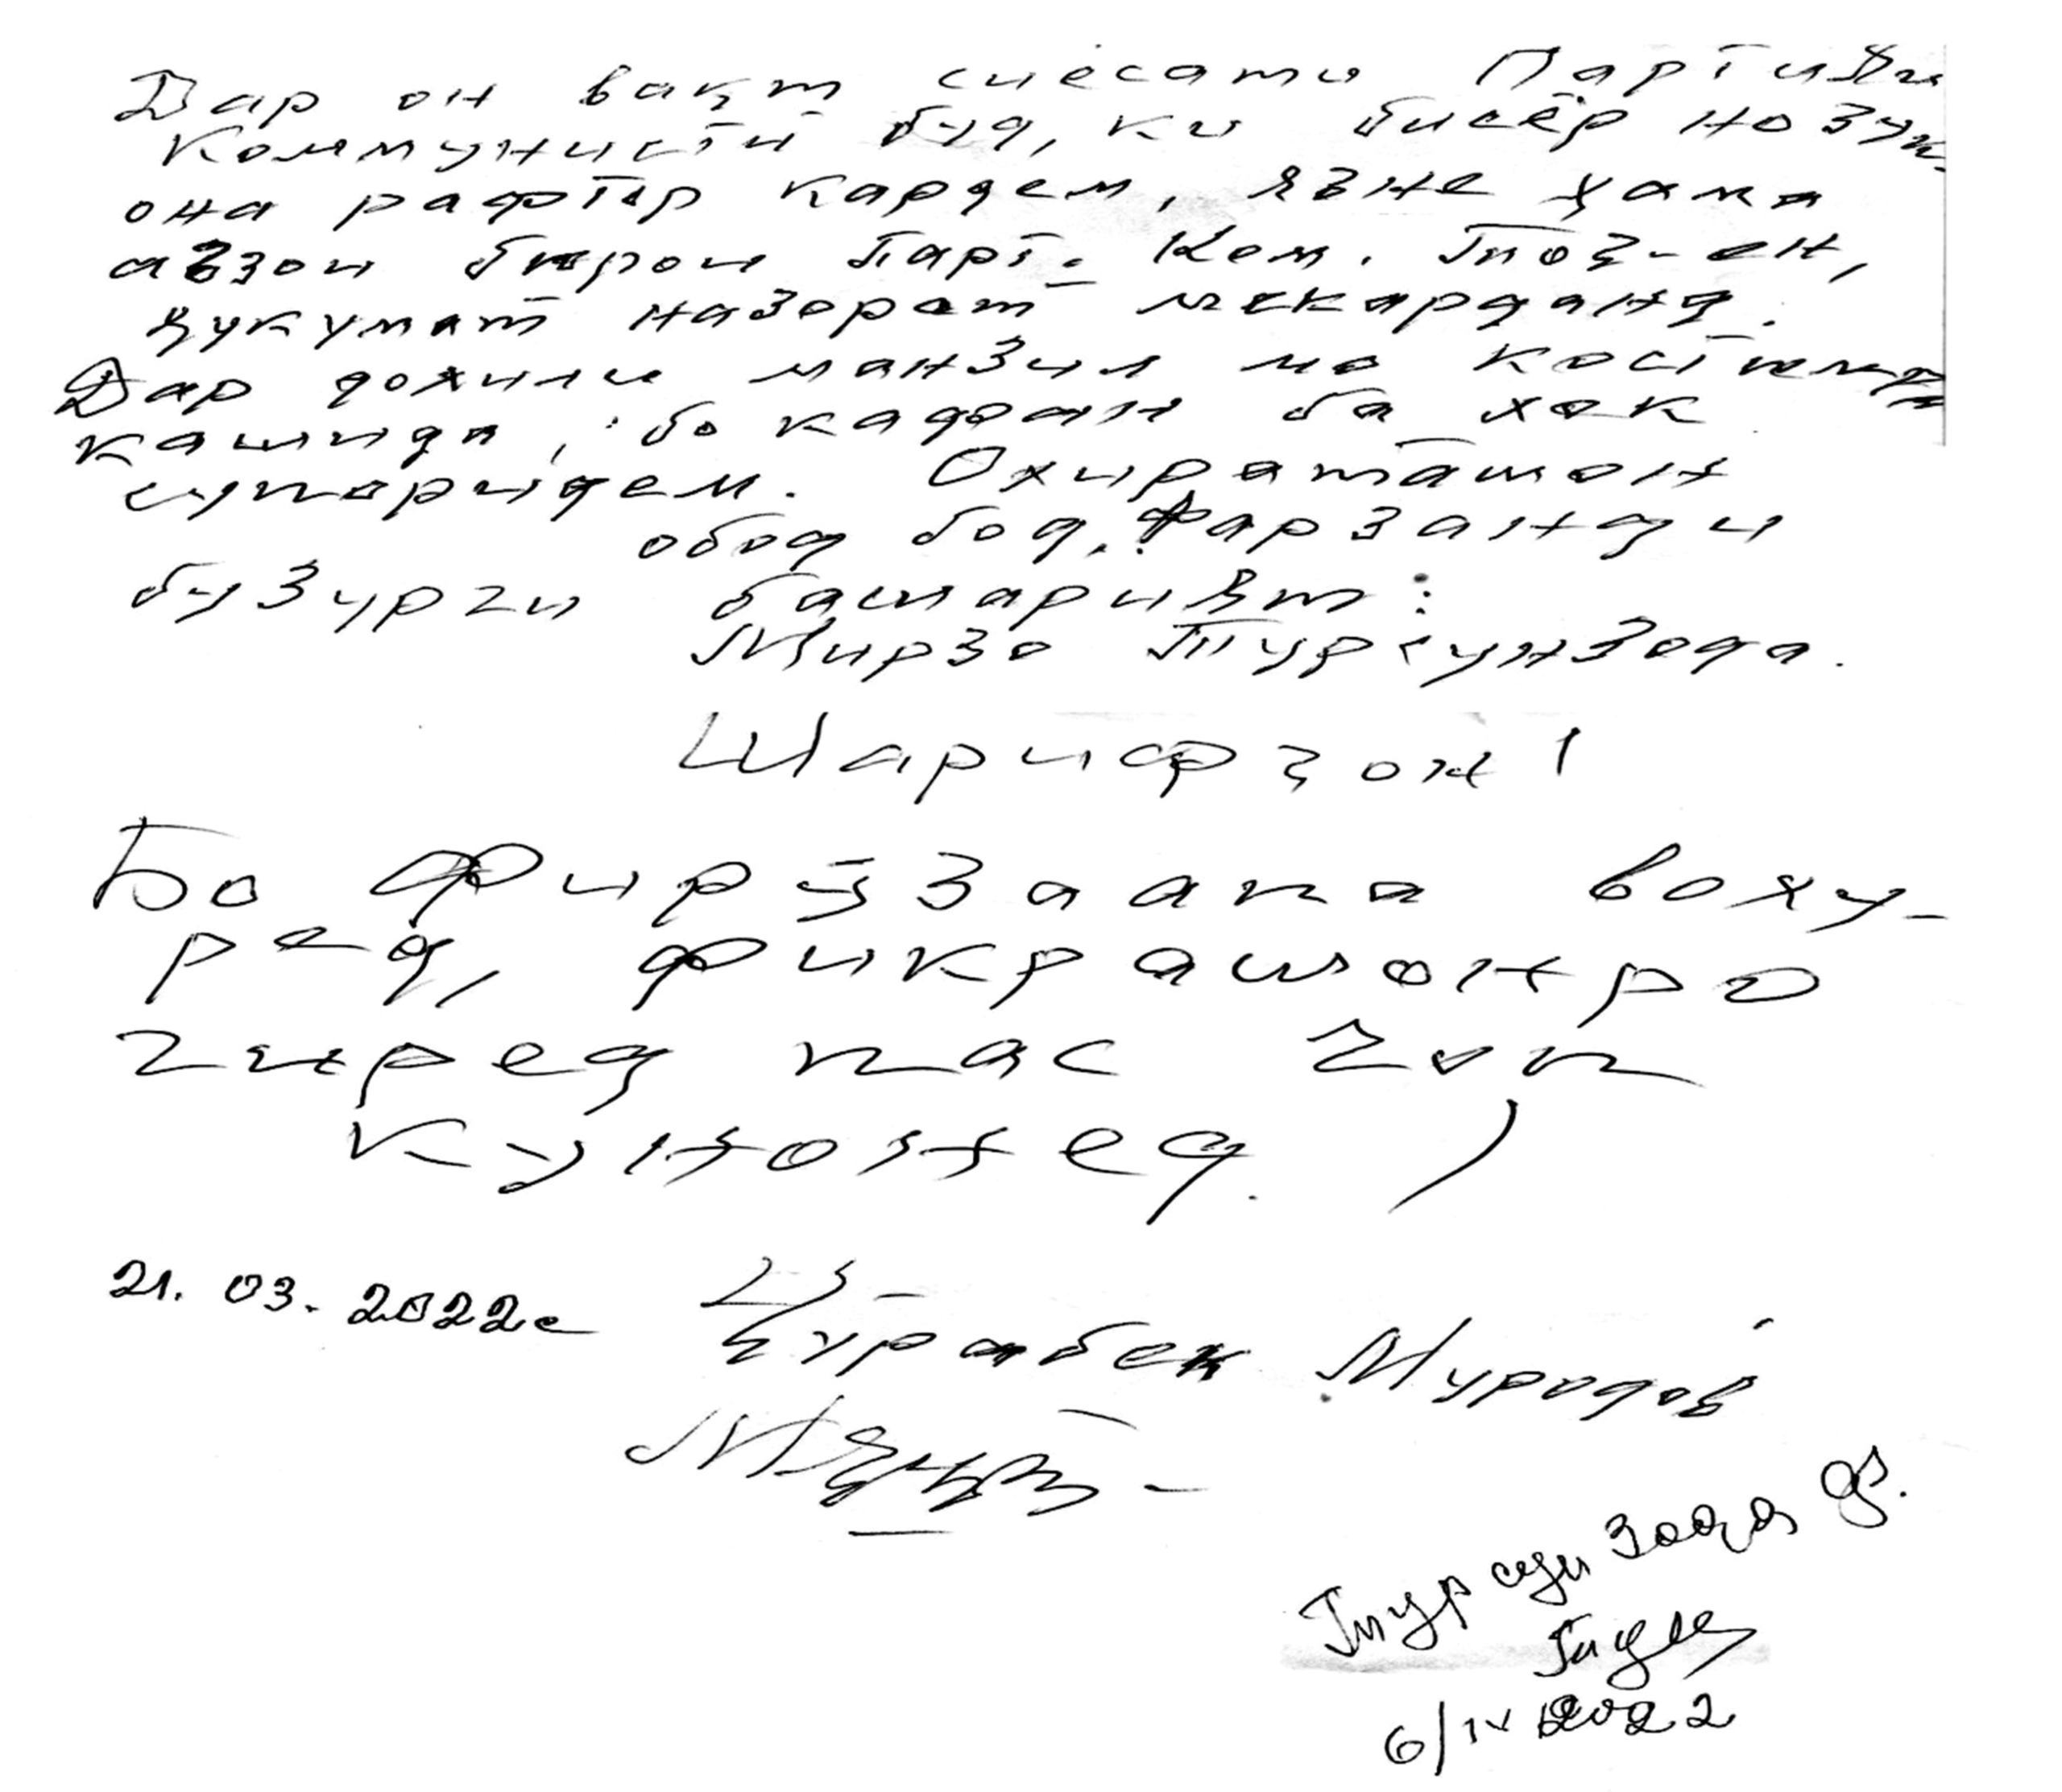 Дар он вақт сиёсати Партияи
Коммунистӣ буд, ки бисёр нозук
она рафтор кардем, яъне ҳама
аъзои бюрои Парт. Ком. Тоҷ-он,
ҳукумат назорат мекарданд.
Дар дохили манзил мо костюм
кашида, бо кафан ба хок
супоридем. Охираташон
обод бод, Фарзанди
бузурги башарият:
Мирзо Турсунзода.
Шарифҷон!
Бо Фирӯза апа воху-
ред, фикрашонро
гиред пас чоп
кунонед.
21.03.2022с Ҷӯрабек Муродов
Турсун Зода Ф.
6/IV 2022